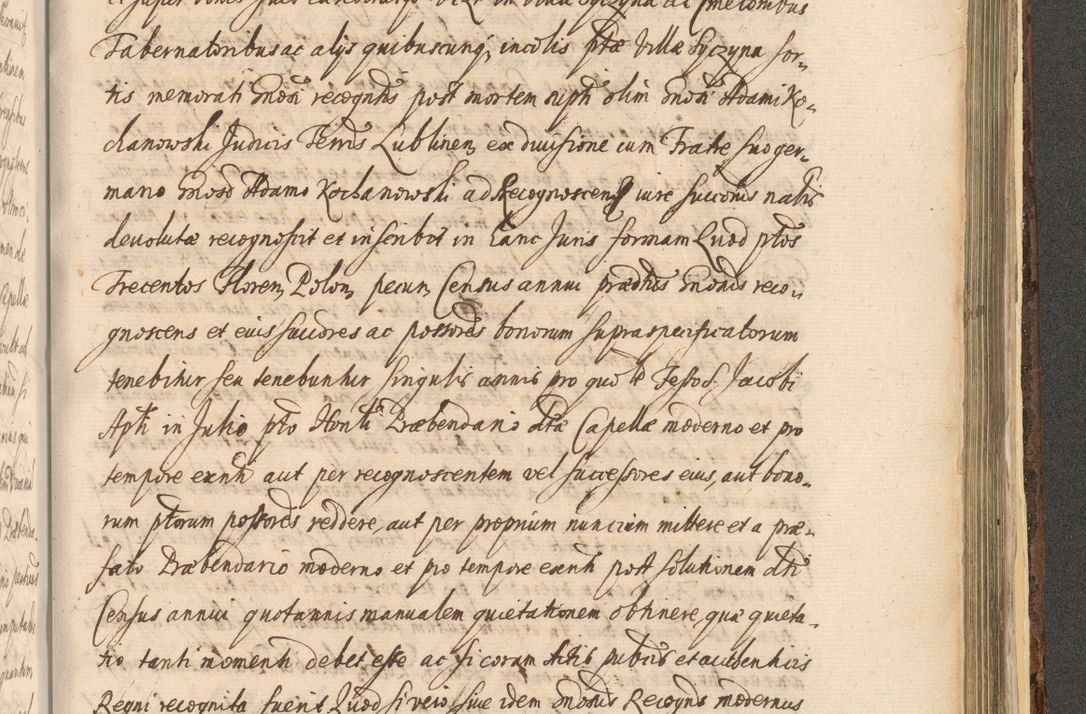 et super bonis suis
Tabernatoribus ac alijs quibuscunq, incolis ptæ Villæ Syczyna sor-
tis memorati Gnosi recogntis post mortem supti olim Gnosi Adami Ko-
chanowski Judicis Terris Lublinen, ex diuisione cum Fratre suo ger-
mano Gnoso Adamo Kochanowski ad Recognoscen iure succonis natis
deuolutæ recognoscit et inscribit in hanc Juris formam Quod ptos
Trecentos Floren, Polon, pecun, Census annui prædtis Gnosus reco-
gnoscens et eius succores ac possores bonorum supraspecificatorum
tenebitur seu tenebuntur singulis annis pro quo te Festo S. Jacobi
Apti in Julio pto Honli Præbendario dtæ Capellæ moderno et pro
tempore exnti aut per recognoscentem vel successores eius, aut bono-
rum ptorum possores reddere, aut per proprium nuncium mittere et a præ-
fato Præbendario moderno et pro tempore exnti post solutionem dti
Census annui quotannis manualem quietationem obtinere, quæ quieta-
tio tanti momenti debet esse ac si coram Actis publicis et authenticis
Regni recognita fuerit Quod si vero siue idem Gnosus Recogns modernus